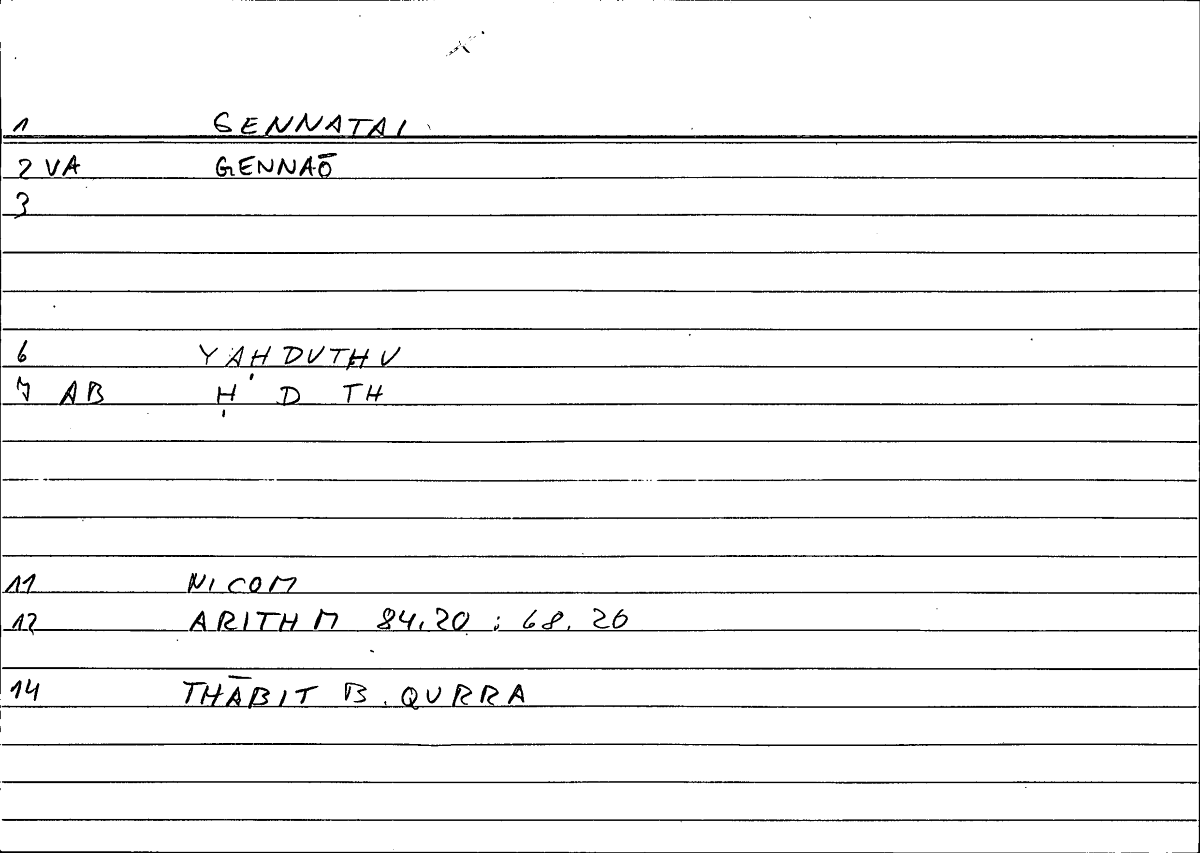 1 GENNATAI
2 VA GENNAŌ
3
6 YAḤDUTHU
7 AB Ḥ D TH
11 NICOM
12 ARITHM 84.20 : 68.20
14 THĀBIT B. QURRA